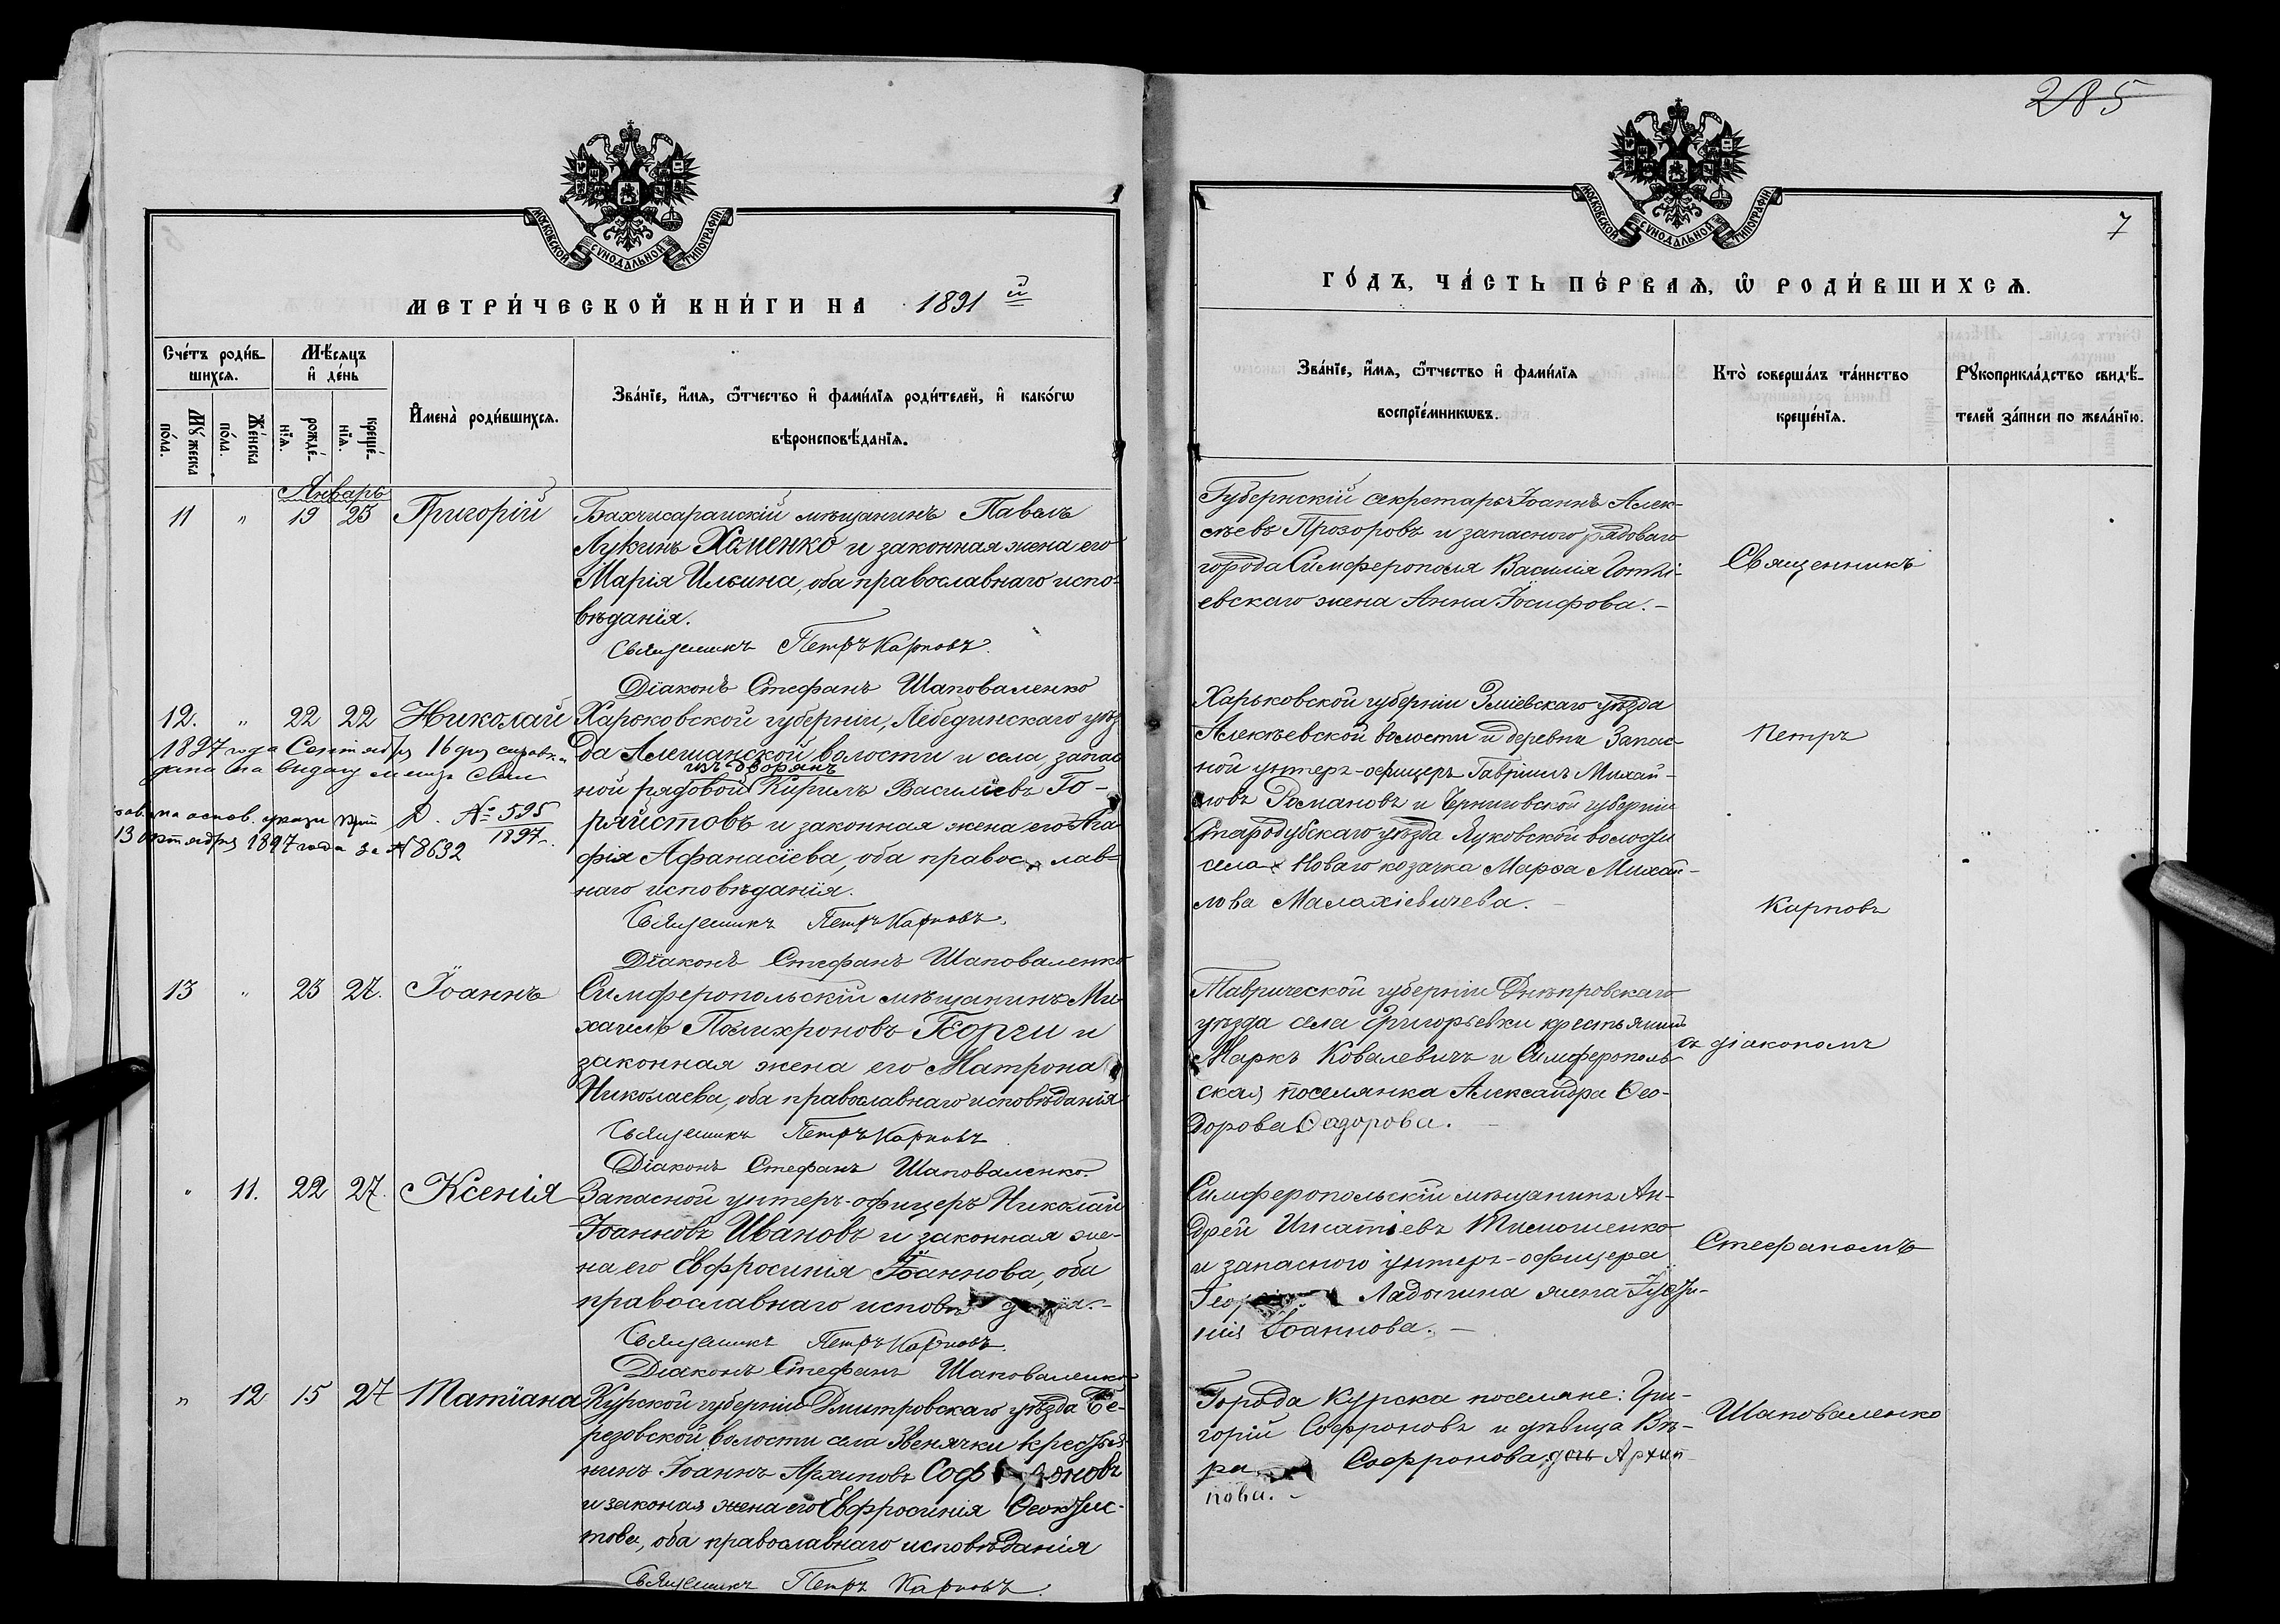 МОСКОВСКОЙ СУНОДАЛЬНОЙ ТИПОГРАФІИ
МЕТРИ́ЧЕСКОЙ КНИ́ГИ НА 1891й
Сче́тъ роди́в-
шихсѧ.
Мѣ́сѧцъ
и҆ де́нь
Му́жеска
по́ла.
Же́нска
по́ла.
рожде́-
нїѧ.
креще́-
нїѧ.
И҆мена̀ роди́вшихсѧ.
Зва́нїе, и҆́мѧ, ѻ҆́тчество и҆ фами́лїѧ роди́телей, и҆ како́гѡ
вѣроисповѣ́данїѧ.
Январь
11 " 19 25 Григорій
Бахчисарайскій мѣщанинъ Павелъ
Лукинъ Хоменко и законная жена его
Марія Ильина, оба православнаго испо-
вѣданія.
Священникъ Петръ Карповъ.
Діаконъ Стефанъ Шаповаленко
12. " 22 22 Николай
Харьковской губерніи, Лебединскаго уѣз
да Алешанской волости и села, запас
изъ дворянъ
ной рядовой Кирилъ Василіевъ Го-
ряистовъ и законная жена его Ага-
фія Афанасіева, оба правос лав-
наго исповѣданія.
Священникъ Петръ Карповъ.
Діаконъ Стефанъ Шаповаленко
1897 года Сентября 16 дня
дана на выдачу
на основ. указа
Д. № 595
1897
13 октября 1897 года за № 8632
13 " 23 27. Іоаннъ
Симферопольскій мѣщанинъ Ми-
хаилъ Полихроновъ Георги и
законная жена его Матрона
Николаева, оба православнаго исповѣданія
Священникъ Петръ Карповъ
Діаконъ Стефанъ Шаповаленко.
" 11. 22 27. Ксенія
Запасной унтеръ-офицеръ Николай
Іоанновъ Ивановъ и законная же-
на его Евфросинія Іоаннова, оба
православнаго исповѣ
Священникъ Петръ Карповъ.
Діаконъ Стефанъ Шаповаленко
" 12 15 27 Татіана
Курской губерніи Дмитровскаго уѣзда Бе-
резовской волости села Звенячки крестья-
нинъ Іоаннъ Архиповъ Соф роновъ
и законая жена его Евфросинія Ѳеокти-
това, оба православнаго исповѣданія
Священникъ Петръ Карповъ.
285
7
МОСКОВСКОЙ СУНОДАЛЬНОЙ ТИПОГРАФІИ
ГО́ДЪ, ЧА́СТЬ ПЕ́РВАѦ, Ѡ҆ РОДИ́ВШИХСѦ.
Зва́нїе, и҆́мѧ, ѻ҆́тчество и҆ фами́лїѧ
воспрїе́мникѡвъ.
Кто̀ соверша́лъ та́инство
креще́нїѧ.
Рꙋкоприкла́дство свидѣ́-
телей за́писи по жела́нїю.
Губернскій секретарь Іоаннъ Алек-
сѣевъ Прозоровъ и запасного рядоваго
города Симферополя Василія
евскаго жена Анна Іосифова.-
Харьковской губерніи Зміевскаго уѣзда
Алексѣевской волости и деревни Запас-
ной унтеръ-офицеръ Гавріилъ Михай-
ловъ Романовъ и Черниговской губерніи
Стародубскаго уѣзда Луковской волости
села Новаго козачка Марѳа Михай-
лова Малахіевичева.-
Таврической губерніи Днѣпровскаго
уѣзда села Григорьевки крестьянинъ
Маркъ Ковалевичъ и Симферополь-
ская поселянка Александра Ѳео-
дорова Ѳадорова.-
Симферопольскій мѣщанинъ Ан-
дрей Игнатіевъ Тимошенко
и запасного унтеръ-офицера
Геор Ладыгина жена
нія Іоаннова.-
Города Курска поселяне: Гри-
горій Софроновъ и дѣвица Вѣ-
ра Софронова, дочь Архип-
пова.-
Священникъ
Петръ
Карповъ
съ діакономъ
Стефаномъ
Шаповаленко